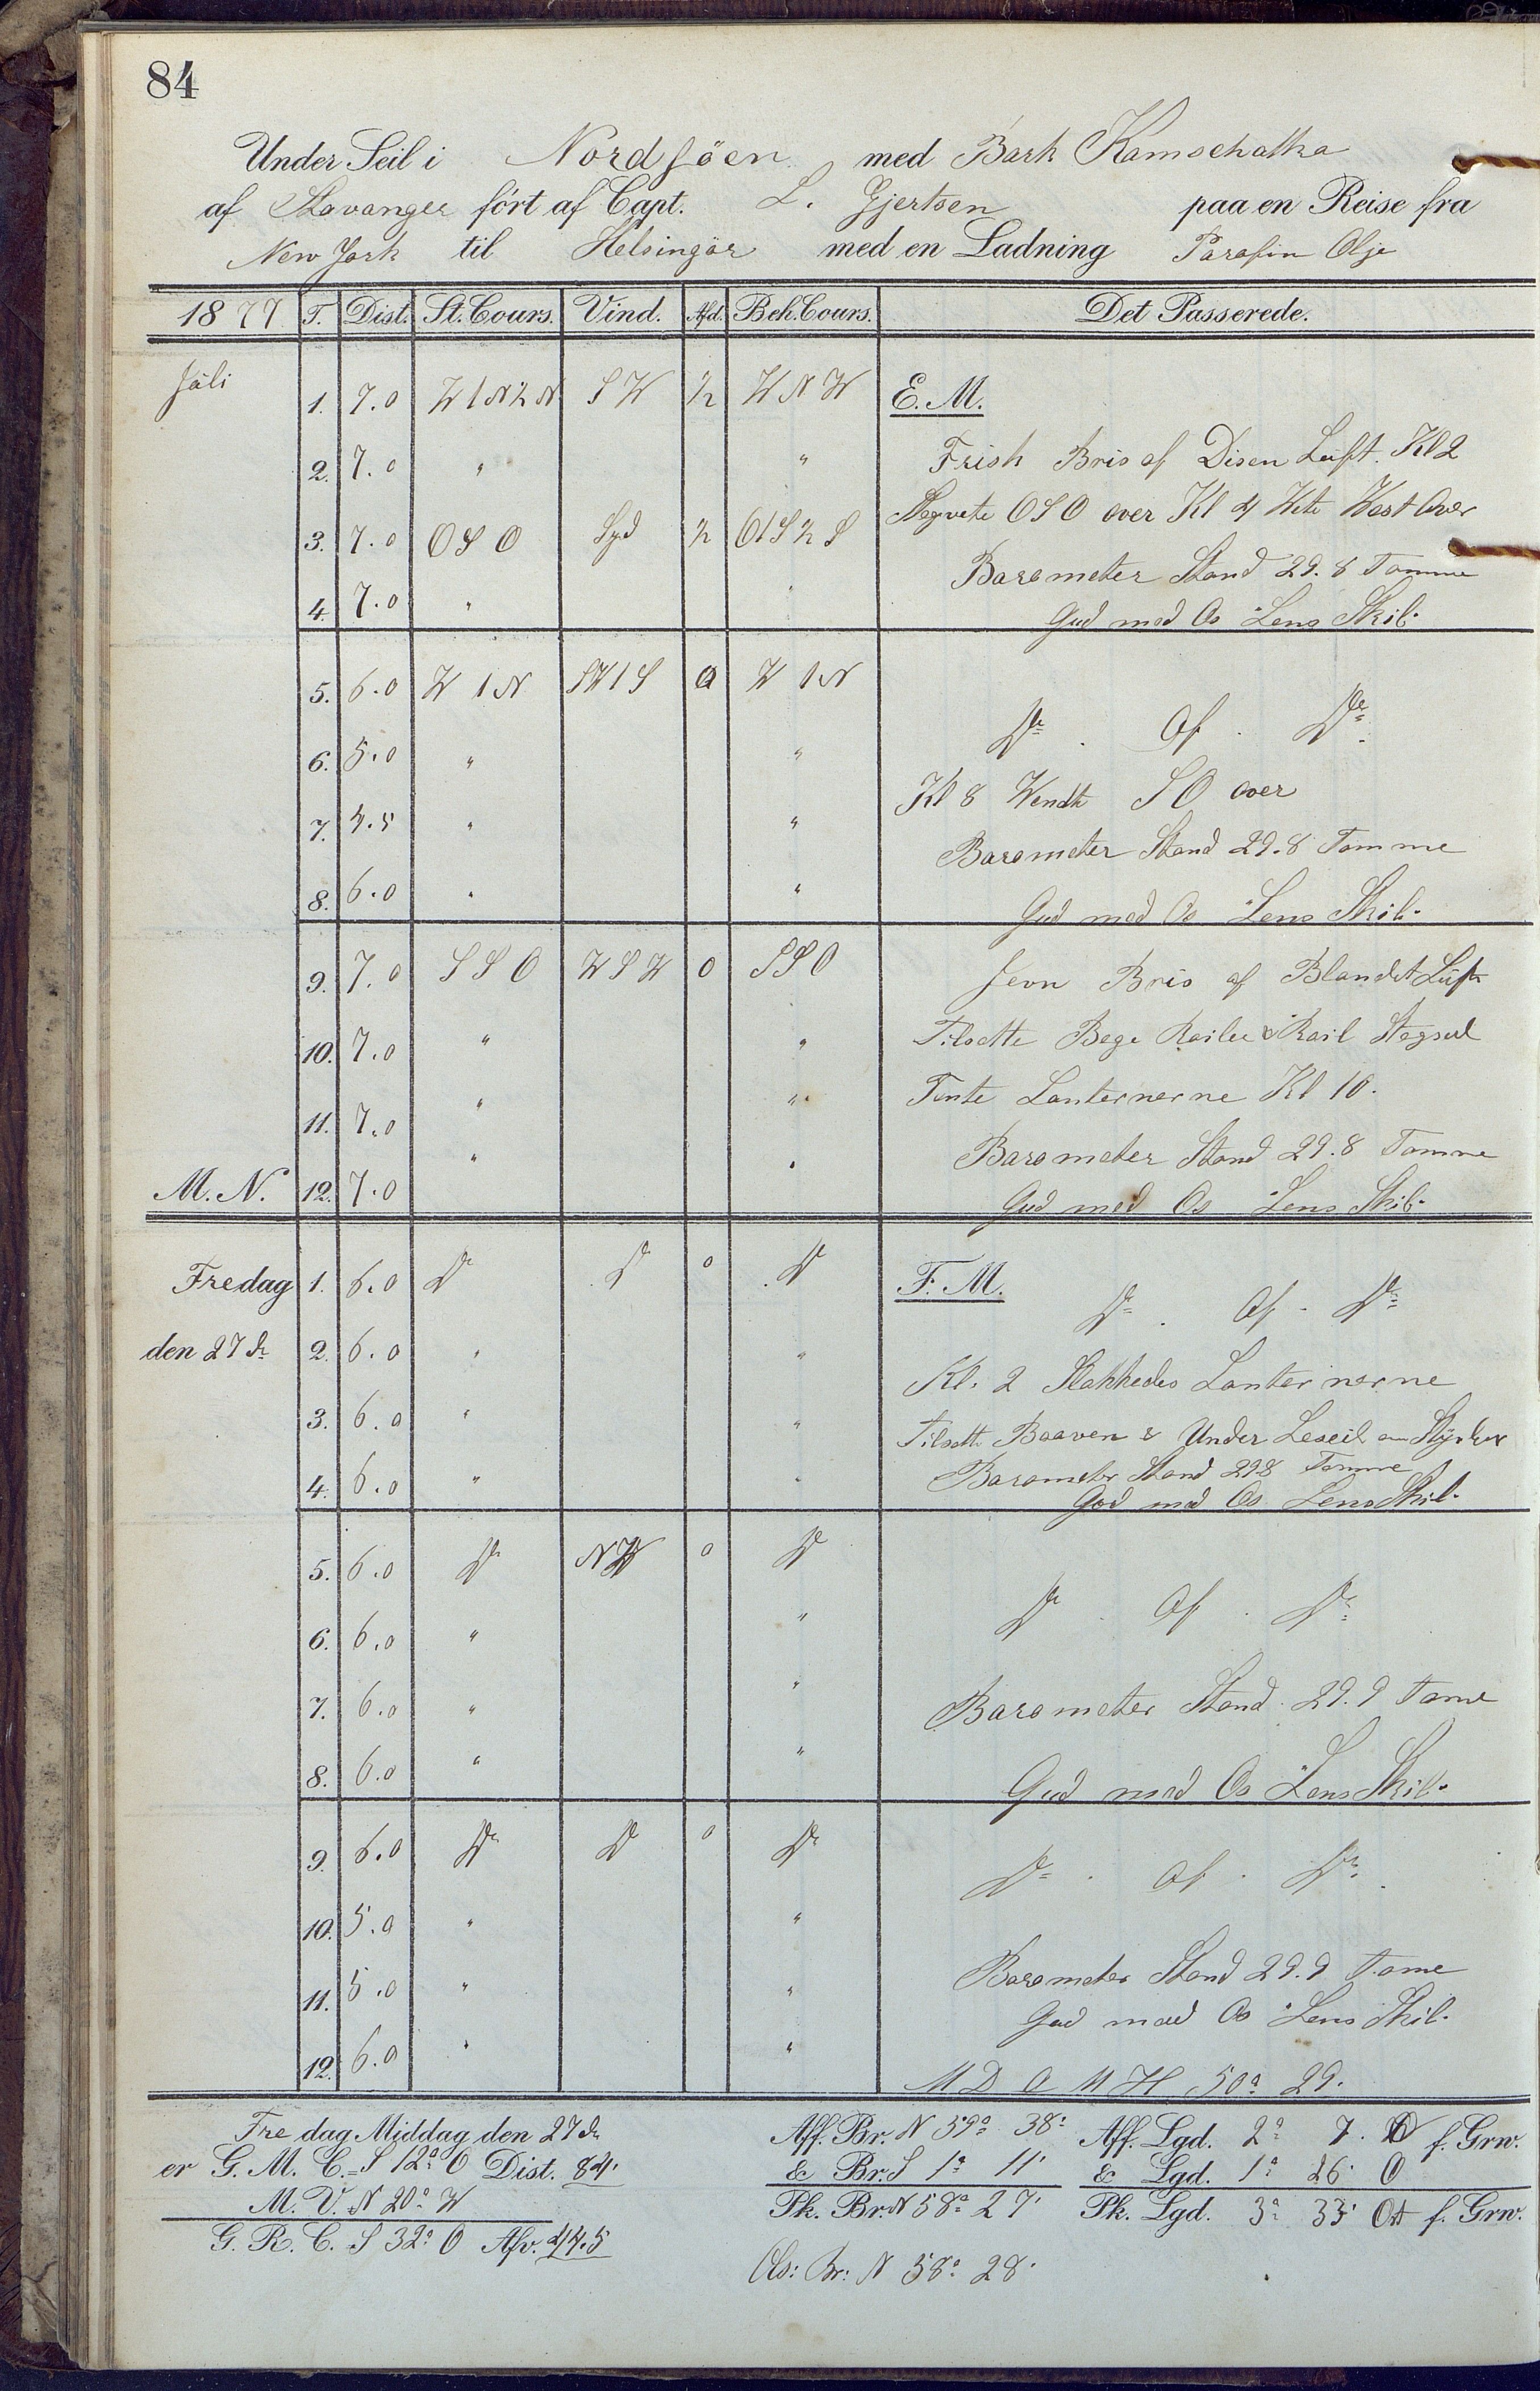 84
Under Seil i Nordsöen med Bark Kamschatka
af Stavanger fört af Capt. L. Gjertsen paa en Reise fra
New York til Helsingör med en Ladning Parafin Olje
1877 T. Dist. St. Cours. Vind. Afd. Beh. Cours. Det Passerede.
Juli 1. 7.0 W 1 N ½ N S W ½ W N W E. M.
2. 7.0 " " Frisk Bris af Disen Luft. Kl 2
3. 7.0 O S O Syd ½ O 1 S ½ S O S O over Kl 4 West Over
Barometer Stand 29.8 Tomme
4. 7.0 " " Gud med Os Lens Skib.
5. 6.0 W 1 N S W 1 S 0 W 1 N
6. 5.0 " " Do. Af. Do.
7. 4.5 " " Kl 8 Vendt S O over
Barometer Stand 29.8 Tomme
8. 6.0 " " Gud med Os Lens Skib.
9. 7.0 S S O W S W 0 S S O Jevn Bris af Blandet Luft
10. 7.0 " " Tilsatte Bege Røiler & Røil Stagseil
11. 7.0 " " Tente Lanternerne Kl 10.
Barometer Stand 29.8 Tomme
M. N. 12. 7.0 " " Gud med Os Lens Skib.
Fredag 1. 6.0 Do Do 0 Do F. M. Do. Af. Do
den 27de 2. 6.0 " " Kl. 2 Slakkedes Lanternerne
3. 6.0 " " Tilsatte Boaven & Under Leseil om Styrbor
Barometer Stand 29.8 Tomme
4. 6.0 " " Gud med Os Lens Skib.
5. 6.0 Do N W 0 Do
6. 6.0 " " Do. Af. Do.
7. 6.0 " " Barometer Stand 29.9 Tome
8. 6.0 " " Gud med Os Lens Skib.
9. 6.0 Do Do 0 Do Do. Af. Do.
10. 5.0 " "
Barometer Stand 29.9 Tome
11. 5.0 " " Gud med Os Lens Skib.
12. 6.0 " " M D O M H 50° 29.
Fredag Middag den 27de Aff. Br. N 59° 38' Aff. Lgd. 2° 7. O f. Grw.
er G. M. C. = S 12° O Dist. 84' & Br. S 1° 11' & Lgd. 1° 26' O
M. V. N 20° W Pk. Br. N 58° 27' Pk. Lgd. 3° 33' Ost f. Grw.
G. R. C. S 32° O Afv. 44.5
Obs: Br: N 58° 28'